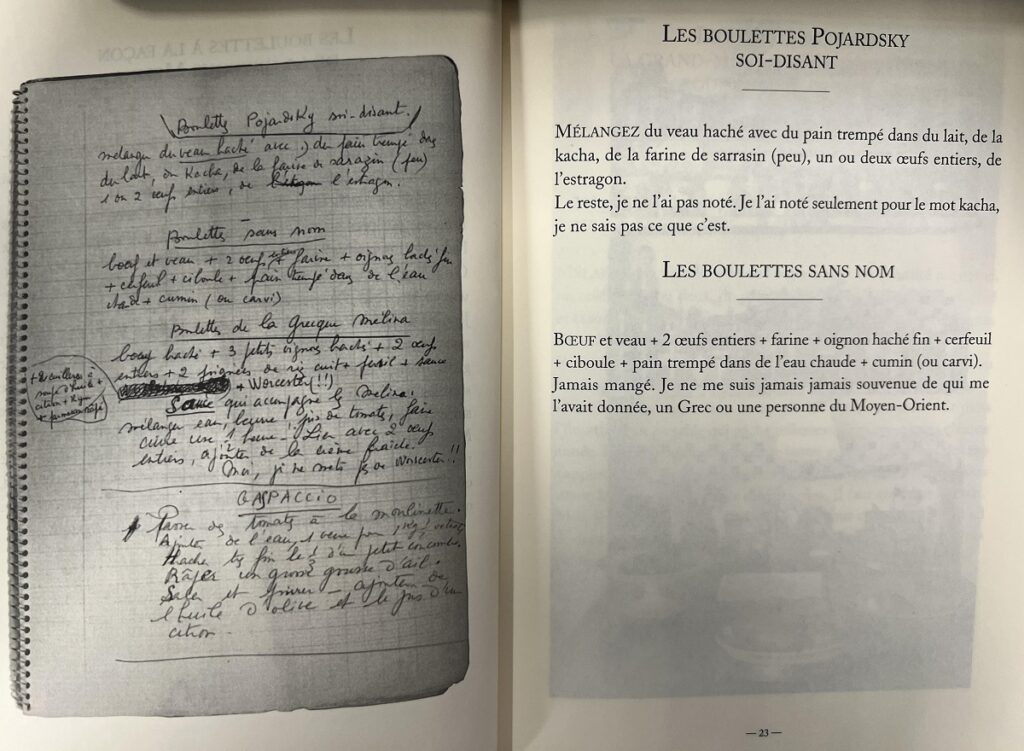 Boulettes Pojardsky soi-disant.
mélanger du veau haché avec du pain trempé dans
du lait, ou Kacha, de la farine de sarazin (peu)
1 ou 2 œufs entiers, de l'estragon.
Boulettes sans nom
bœuf et veau + 2 œufs + farine + oignons hachés fin
+ cerfeuil + ciboule + pain trempé dans de l'eau
chde + cumin (ou carvi)
Boulettes de la Grecque Mélina
bœuf haché + 3 petits oignons hachés + 2 œufs
entiers + 2 poignées de riz cuit + persil + sauce
+ Worcester!!)
soupe d'huile +
citron +
+ parmesan râpé
Sauce qui accompagne la Mélina:
mélanger eau, beurre, jus de tomates, faire
cuire une 1 heure. Lier avec 2 œufs
entiers, ajouter de la crème fraîche.
Moi, je ne mets pas de Worcester!!
GASPACCIO
Passer des tomates à la moulinette.
Ajouter de l'eau, 1 verre par
Hacher très fin le 1/3 d'un petit concombre.
Râper une grosse gousse d'ail.
Saler et poivrer – ajouter de
l'huile d'olive et le jus d'un
citron –
LES BOULETTES POJARDSKY
SOI-DISANT
MÉLANGEZ du veau haché avec du pain trempé dans du lait, de la
kacha, de la farine de sarrasin (peu), un ou deux œufs entiers, de
l'estragon.
Le reste, je ne l'ai pas noté. Je l'ai noté seulement pour le mot kacha,
je ne sais pas ce que c'est.
LES BOULETTES SANS NOM
BŒUF et veau + 2 œufs entiers + farine + oignon haché fin + cerfeuil
+ ciboule + pain trempé dans de l'eau chaude + cumin (ou carvi).
Jamais mangé. Je ne me suis jamais jamais souvenue de qui me
l'avait donnée, un Grec ou une personne du Moyen-Orient.
— 23 —